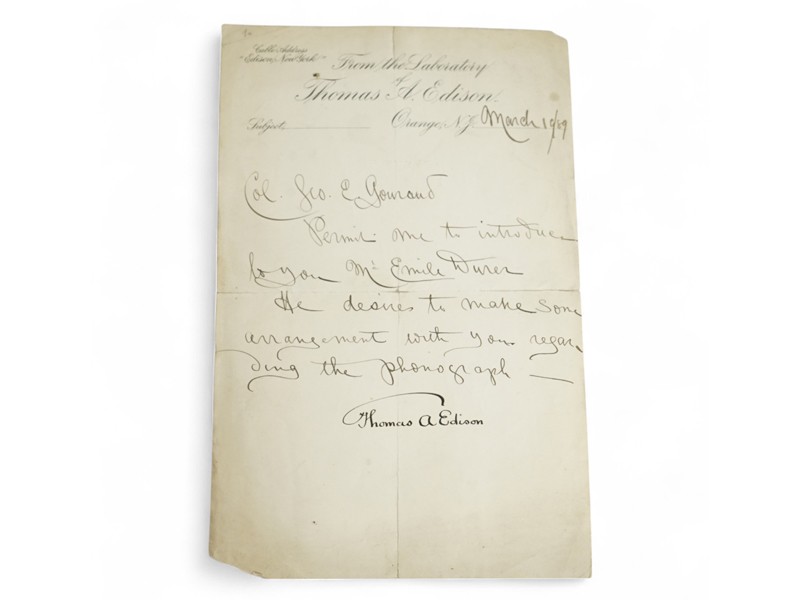 Cable Address
"Edison, New York"
From the Laboratory
of
Thomas A. Edison.
Subject, Orange, N.J. March 19/89
Col. Geo. E. Gouraud
Permit me to introduce
to you Mr Emile Durer
He desires to make some
arrangement with you regar
ding the phonograph —
Thomas A Edison